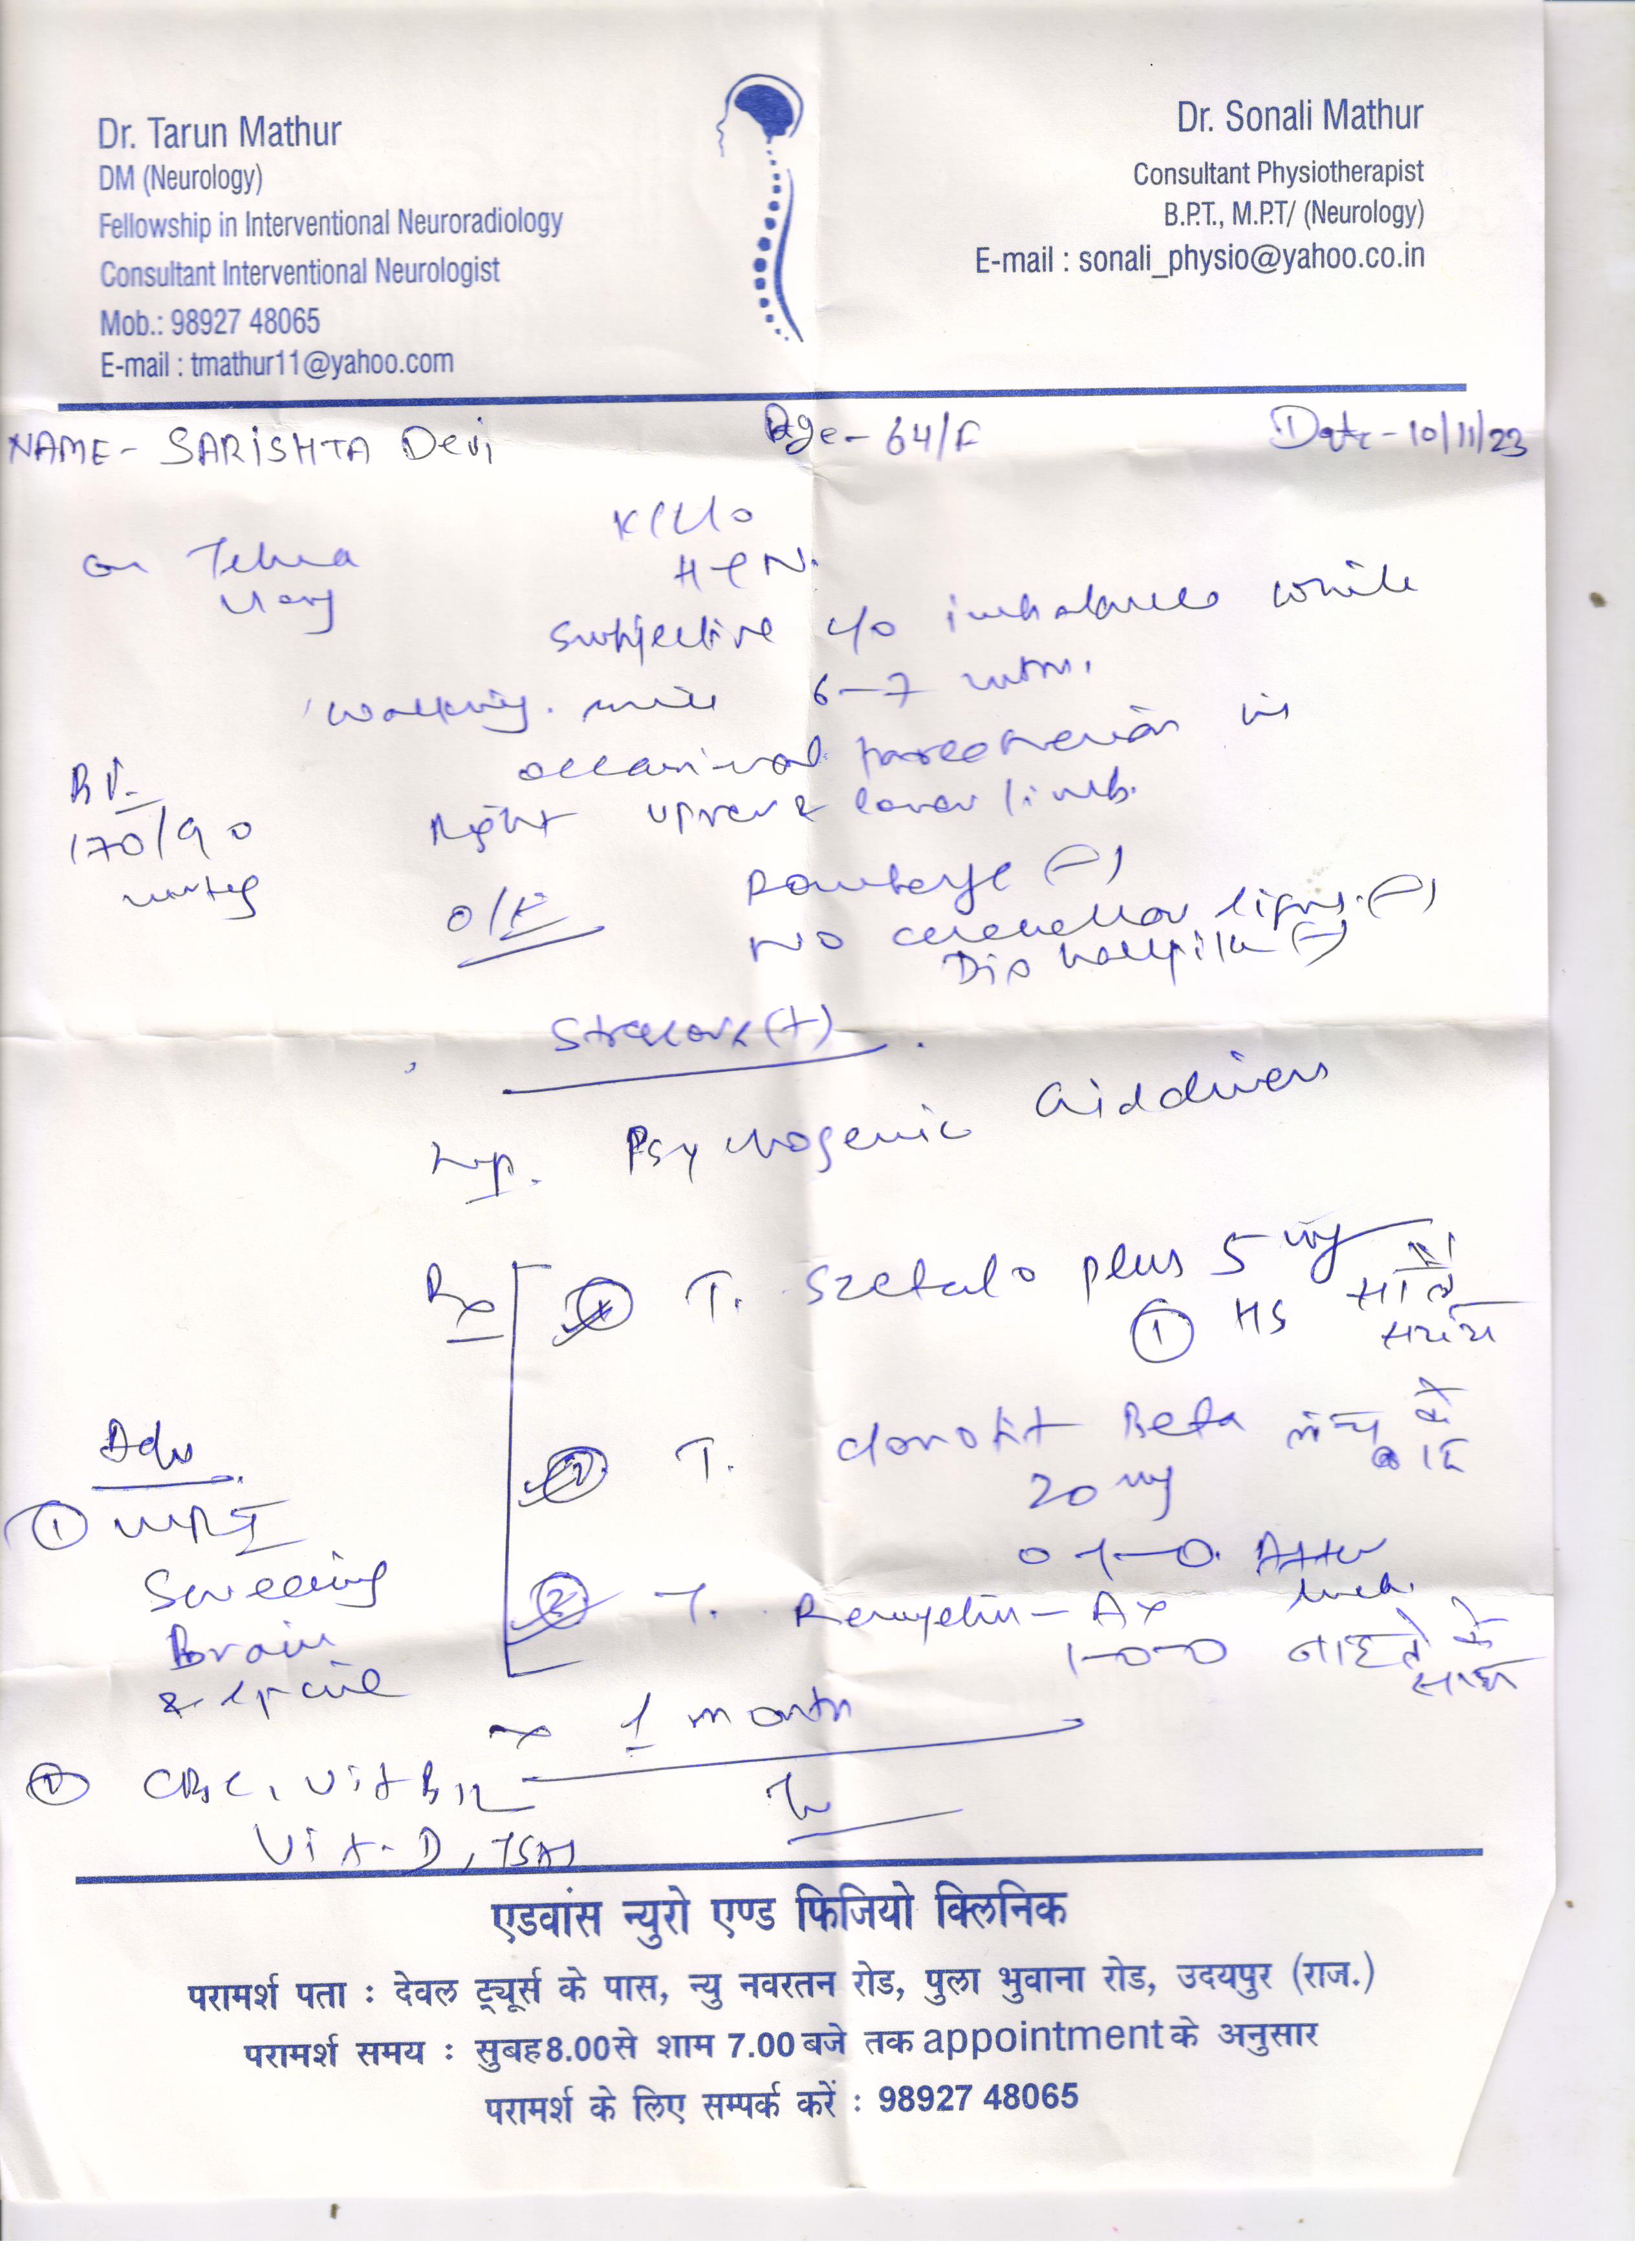 Dr. Tarun Mathur
DM (Neurology)
Fellowship in Interventional Neuroradiology
Consultant Interventional Neurologist
Mob.: 98927 48065
E-mail : tmathur11@yahoo.com
Dr. Sonali Mathur
Consultant Physiotherapist
B.P.T., M.P.T/ (Neurology)
E-mail : sonali_physio@yahoo.co.in
NAME- SARISHTA Devi Age- 64/F Date-10/11/23
K/c/o
HTN.
on Telma
subjective c/o imbalance while
walking. since 6-7 mths.
occasional in
Right upper & lower limb.
BP.
170/90
mmHg
O/E Romberg (-)
No cerebellar signs. (-)
Dix hallpike (-)
Stressors (+)
Imp. Psychogenic Giddiness
Rx
① T. Szetalo plus 5 mg
① HS सोते
समय
② T. Beta लंच के
20 mg बाद
0-1-0. After
lunch.
③ T. - Ax
1-0-0 नाश्ते के
साथ
x 1 month
Adv
① MRI
Screening
Brain
& spine
② CBC, Vit B12
Vit-D, TSH
एडवांस न्युरो एण्ड फिजियो क्लिनिक
परामर्श पता : देवल ट्यूर्स के पास, न्यु नवरतन रोड, पुला भुवाना रोड, उदयपुर (राज.)
परामर्श समय : सुबह 8.00 से शाम 7.00 बजे तक appointment के अनुसार
परामर्श के लिए सम्पर्क करें : 98927 48065